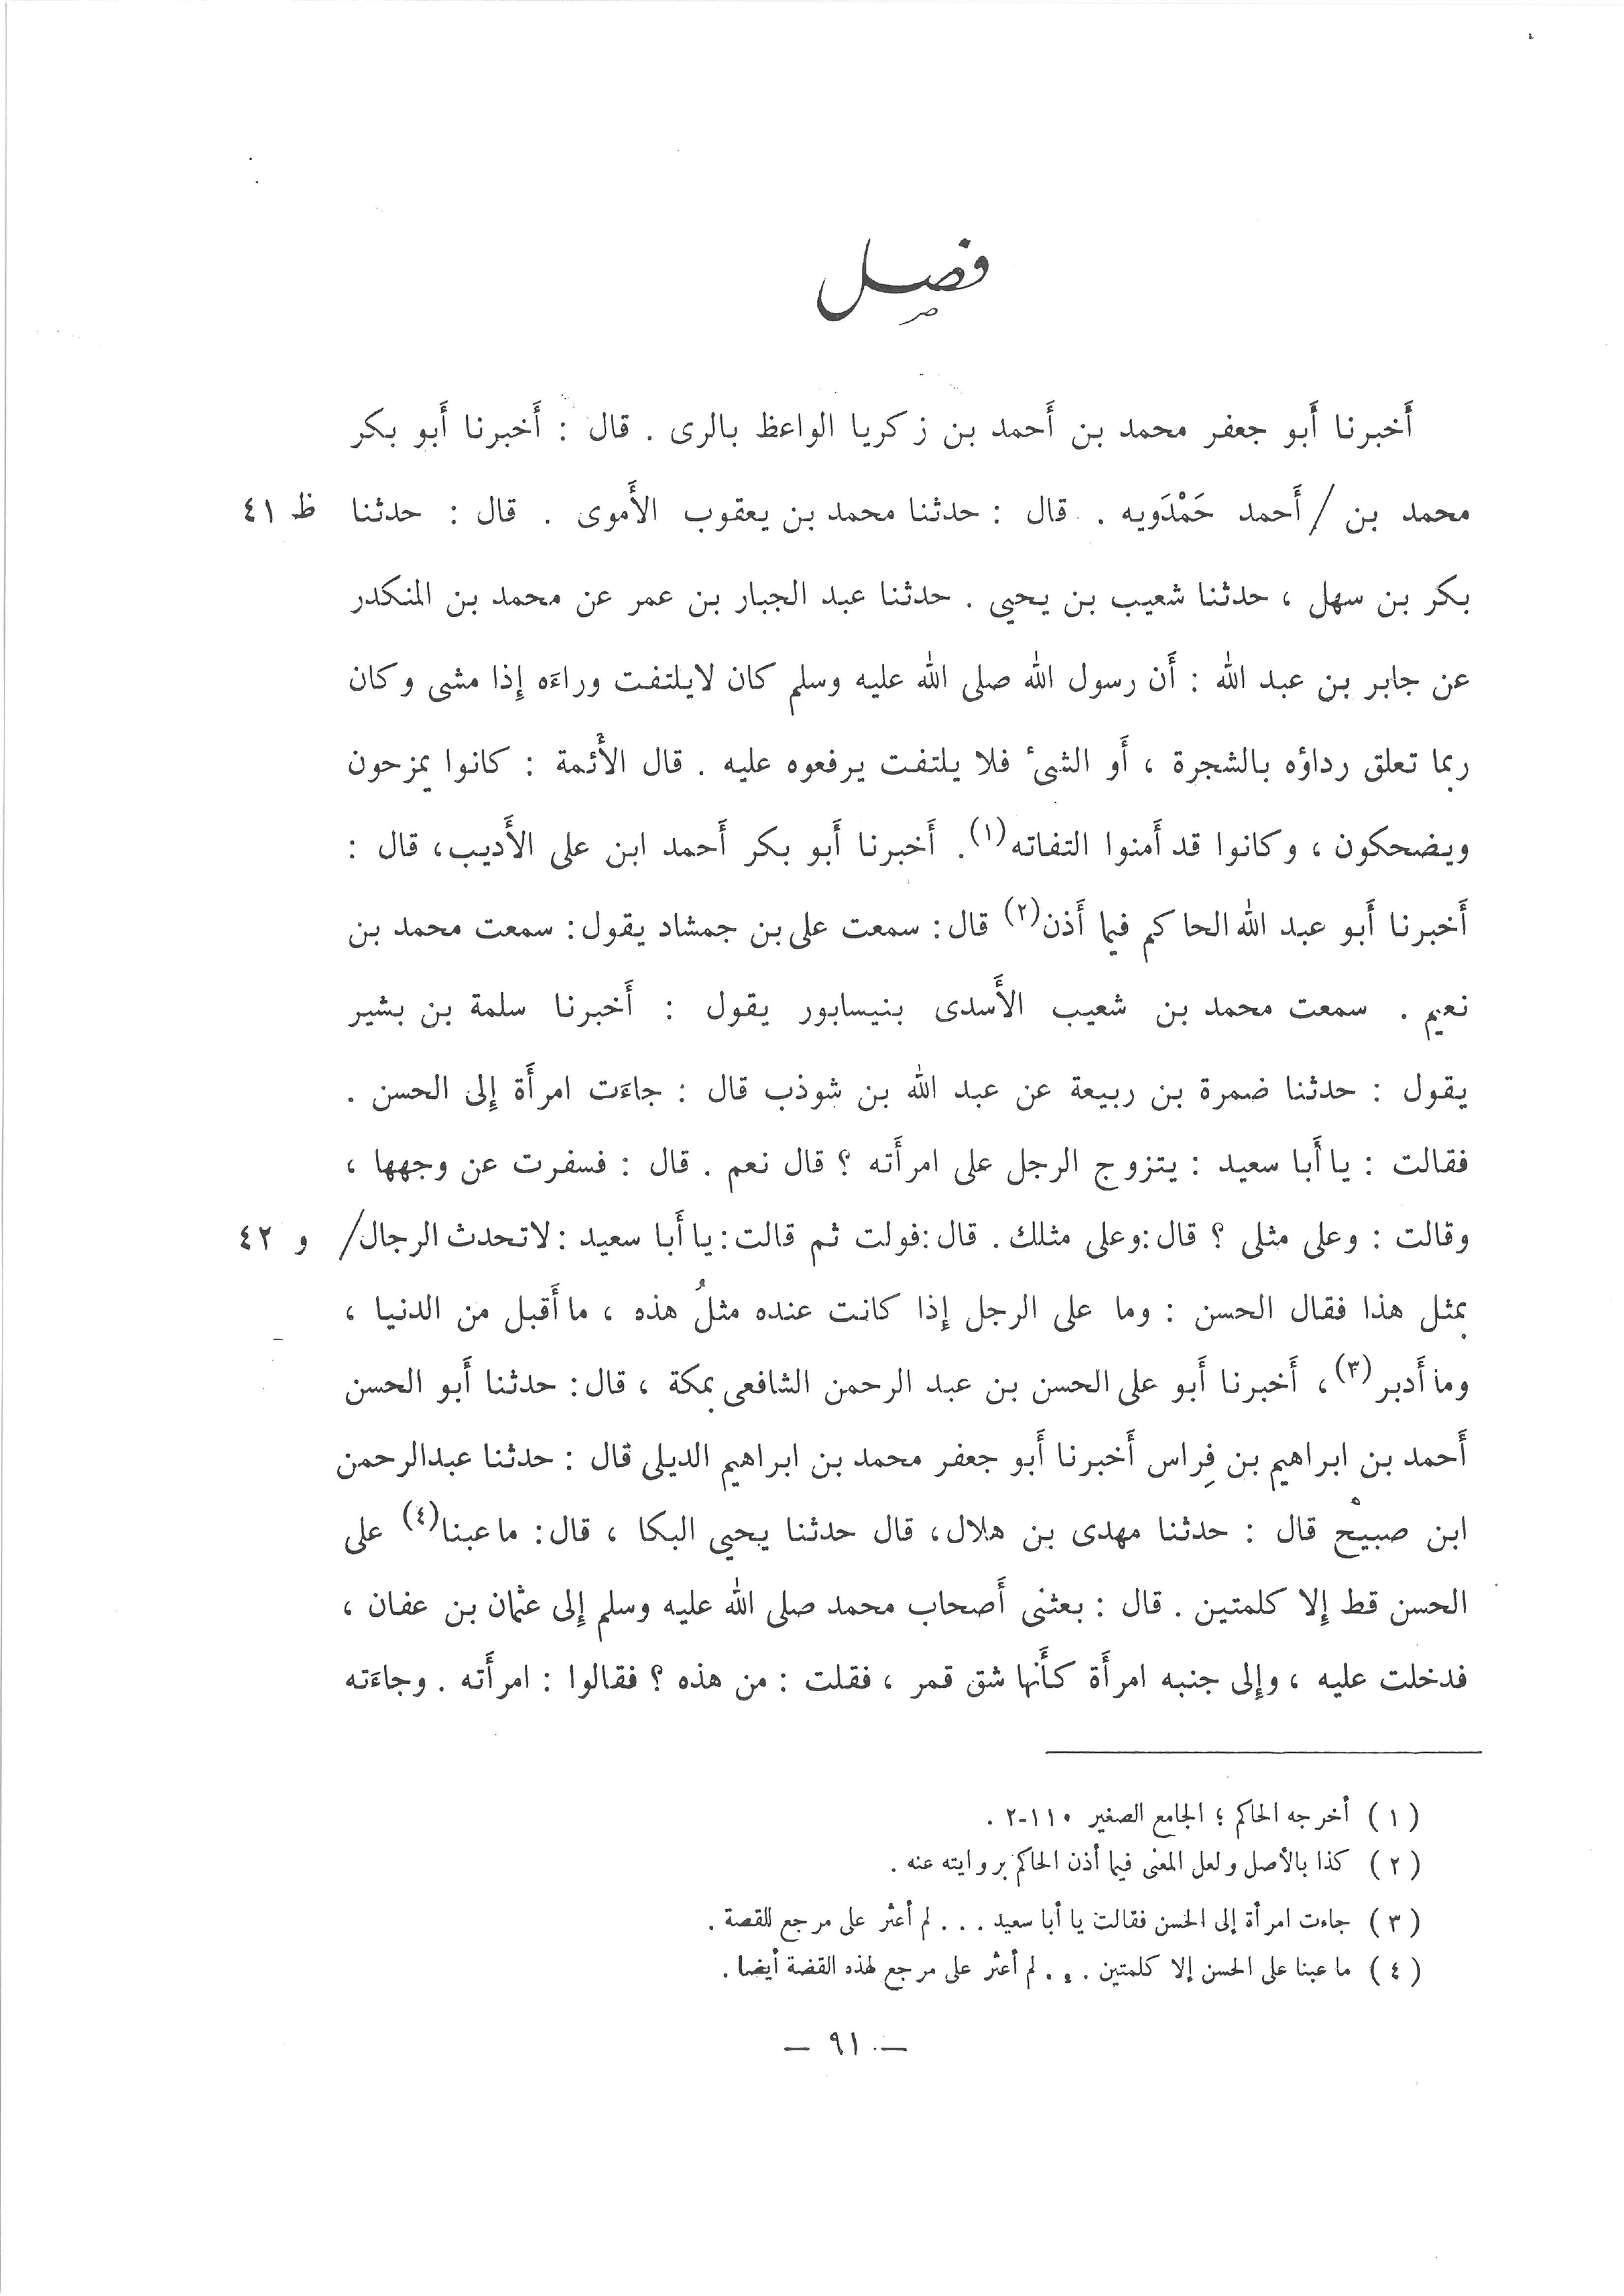 فصل
أَخبرنا أَبو جعفر محمد بن أَحمد بن زكريا الواعظ بالرى . قال : أَخبرنا أَبو بكر
محمد بن / أَحمد حَمْدَويه . قال : حدثنا محمد بن يعقوب الأَموى . قال : حدثنا ظ ٤١
بكر بن سهل ، حدثنا شعيب بن يحيى . حدثنا عبد الجبار بن عمر عن محمد بن المنكدر
عن جابر بن عبد الله : أَن رسول الله صلى الله عليه وسلم كان لايلتفت وراءَه إِذا مشى وكان
ربما تعلق رداؤه بالشجرة ، أَو الشىٔ فلا يلتفت يرفعوه عليه . قال الأَئمة : كانوا يمزحون
ويضحكون ، وكانوا قد أَمنوا التفاته(١) . أَخبرنا أَبو بكر أَحمد ابن على الأَديب، قال :
أَخبرنا أَبو عبد الله الحاكم فيما أَذن(٢) قال : سمعت على بن جمشاد يقول : سمعت محمد بن
نعيم . سمعت محمد بن شعيب الأَسدى بنيسابور يقول : أَخبرنا سلمة بن بشير
يقول : حدثنا ضمرة بن ربيعة عن عبد الله بن شوذب قال : جاءَت امرأَة إِلى الحسن .
فقالت : يا أَبا سعيد : يتزوج الرجل على امرأَته ؟ قال نعم . قال : فسفرت عن وجهها ،
وقالت : وعلى مثلى ؟ قال :وعلى مثلك . قال :فولت ثم قالت : يا أَبا سعيد : لاتحدث الرجال/ و ٤٢
بمثل هذا فقال الحسن : وما على الرجل إِذا كانت عنده مثلُ هذه ، ما أَقبل من الدنيا ،
وما أَدبر (٣) ، أَخبرنا أَبو على الحسن بن عبد الرحمن الشافعى بمكة ، قال : حدثنا أَبو الحسن
أَحمد بن ابراهيم بن فِراس أَخبرنا أَبو جعفر محمد بن ابراهيم الديلى قال : حدثنا عبدالرحمن
ابن صبيْح قال : حدثنا مهدى بن هلال، قال حدثنا يحيى البكا ، قال : ما عبنا(٤) على
الحسن قط إِلا كلمتين . قال : بعثنى أَصحاب محمد صلى الله عليه وسلم إِلى عثمان بن عفان ،
فدخلت عليه ، وإِلى جنبه امرأَة كأَنها شق قمر ، فقلت : من هذه ؟ فقالوا : امرأَته . وجاءَته
( ١ ) أخرجه الحاكم ؛ الجامع الصغير ١١٠-٢ .
( ٢ ) كذا بالأصل ولعل المعنى فيما أذن الحاكم بروايته عنه .
( ٣ ) جاءت امرأة إلى الحسن فقالت يا أبا سعيد . . . لم أعثر على مرجع للقصة .
( ٤ ) ما عبنا على الحسن إلا كلمتين . . . لم أعثر على مرجع لهذه القضة أيضا .
— ٩١ —